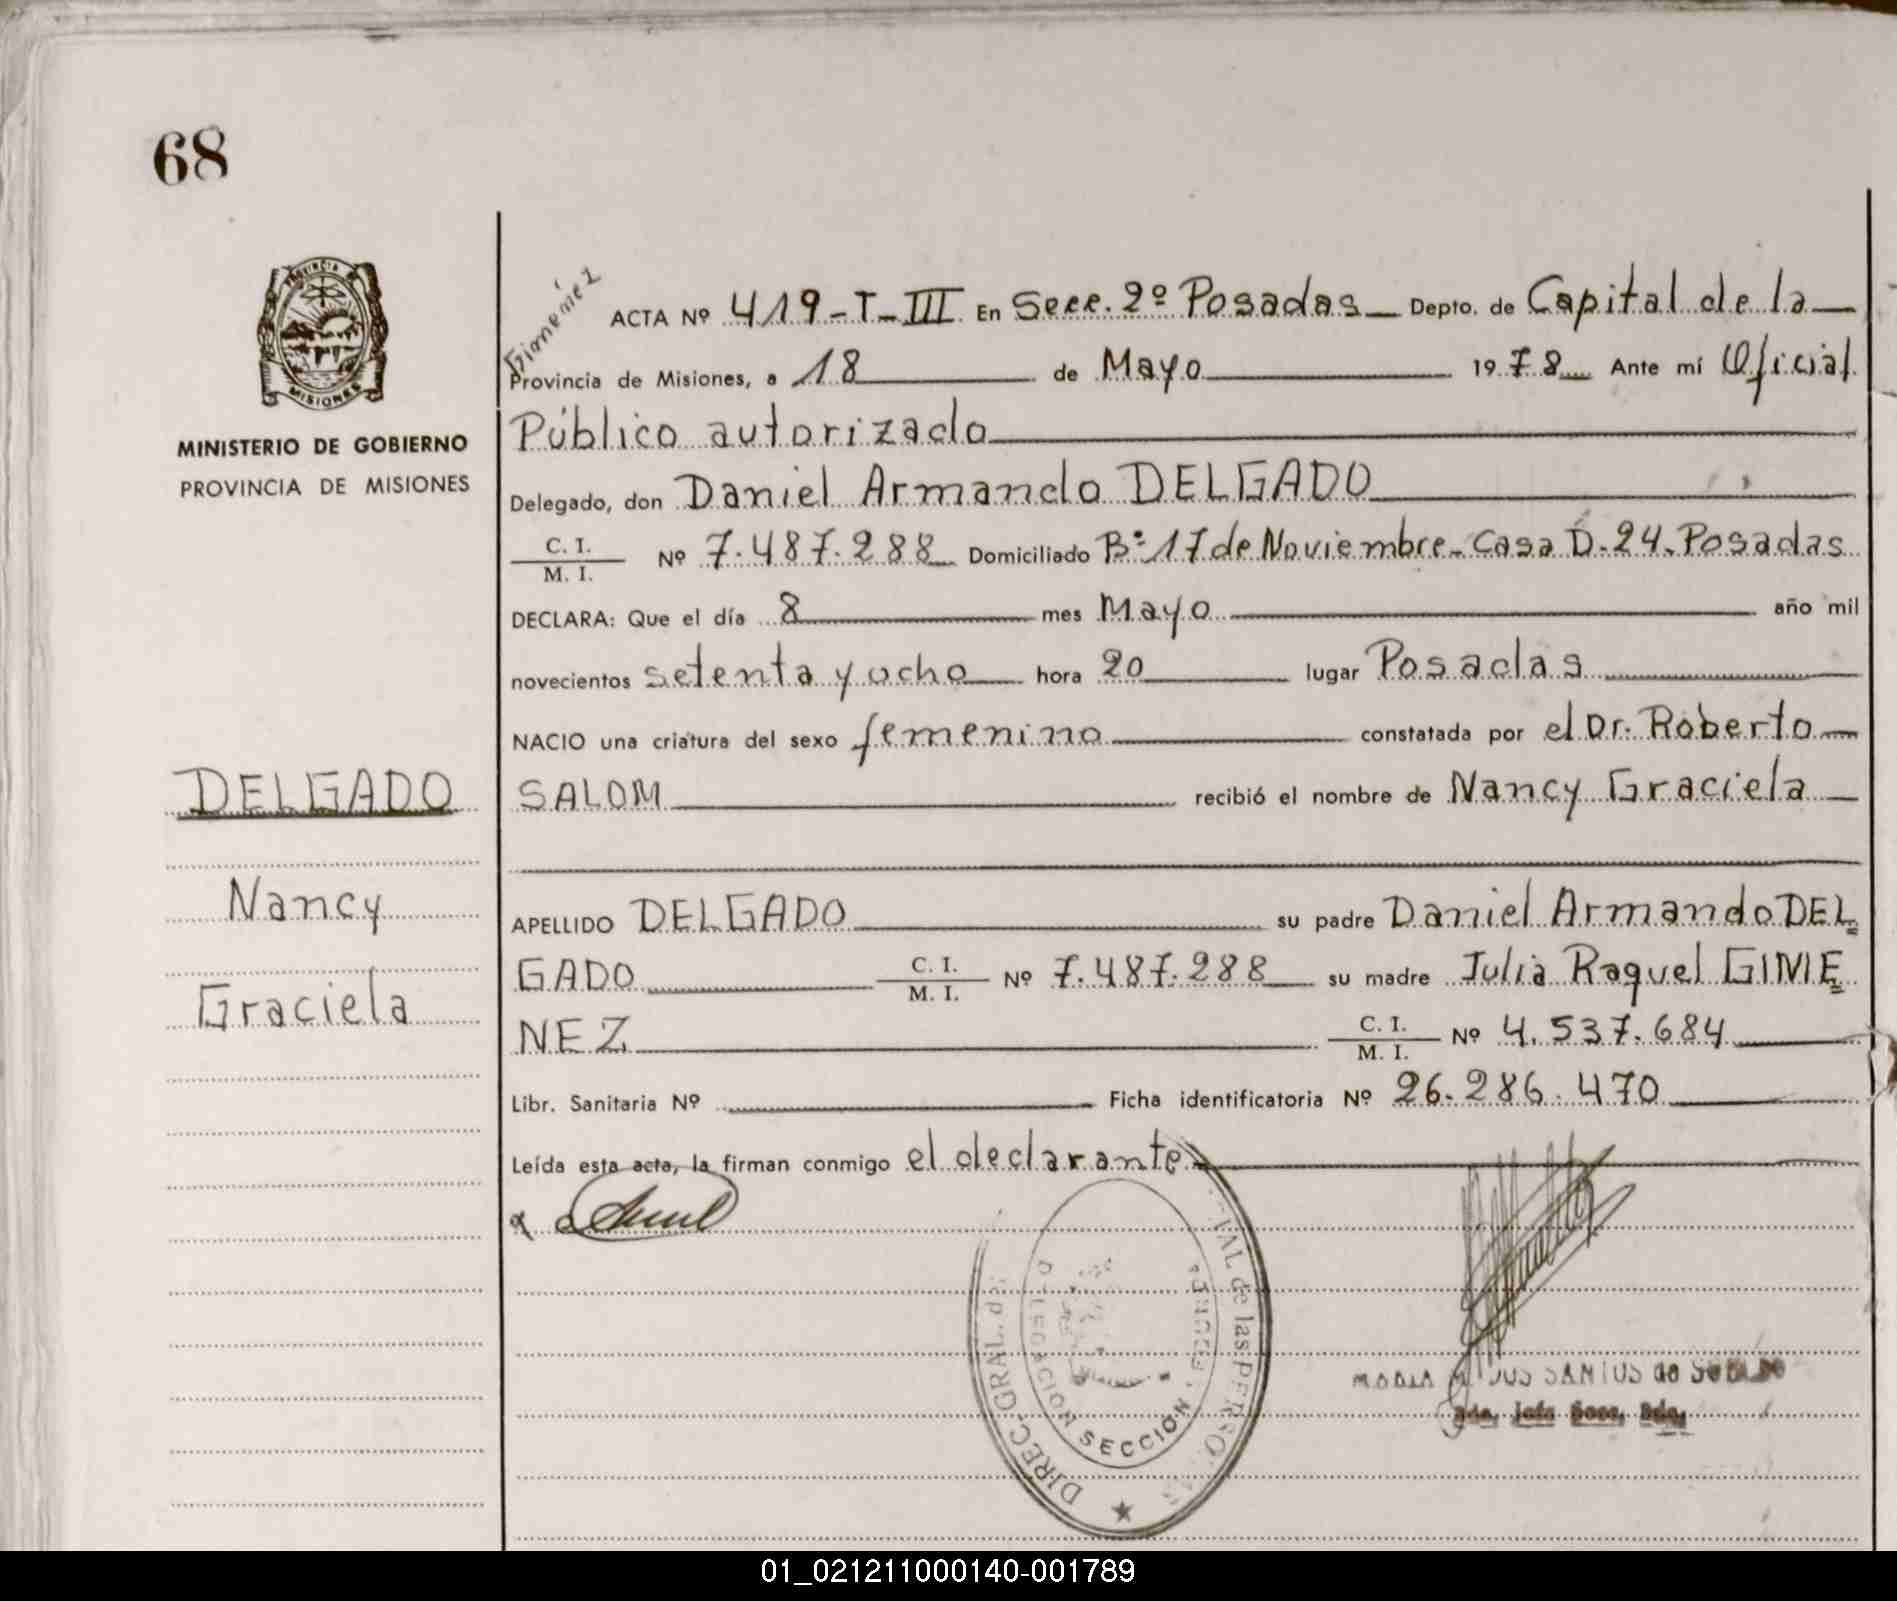 68
Giménez
PROVINCIA DE
MISIONES
MINISTERIO DE GOBIERNO
PROVINCIA DE MISIONES
DELGADO
Nancy
Graciela
ACTA Nº 419-T-III En Secc. 2º Posadas Depto. de Capital de la
Provincia de Misiones, a 18 de Mayo 1978 Ante mí Oficial
Público autorizado
Delegado, don Daniel Armando DELGADO
C. I.
M. I. Nº 7.487.288 Domiciliado Bº 17 de Noviembre - Casa D-24-Posadas
DECLARA: Que el día 8 mes Mayo año mil
novecientos setenta y ocho hora 20 lugar Posadas
NACIO una criatura del sexo femenino constatada por el Dr. Roberto
SALOM recibió el nombre de Nancy Graciela
APELLIDO DELGADO su padre Daniel Armando DEL=
GADO C. I. M. I. Nº 7.487.288 su madre Julia Raquel GIME=
NEZ C. I. M. I. Nº 4.537.684
Libr. Sanitaria Nº Ficha identificatoria Nº 26.286.470
Leída esta acta, la firman conmigo el declarante
DIREC. GRAL. de las
SECCION
SANTOS de
01_021211000140-001789